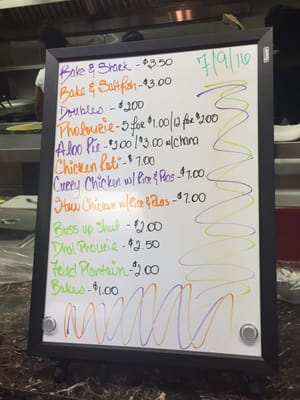 Bake & Shark - $3.50
7/9/16
Bake & Saltfish - $3.00
Doubles - $2.00
Pholourie - 5 for $1.00/12 for $2.00
Aloo Pie - $2.00/$3.00 w/chana
Chicken Roti - $7.00
Curry Chicken w/Rice & Peas - $7.00
Stew Chicken w/Rice & Peas - $7.00
Buss up Shut - $2.00
Dhal Phourie - $2.50
Fried Plantain - $2.00
Bakes - $1.00